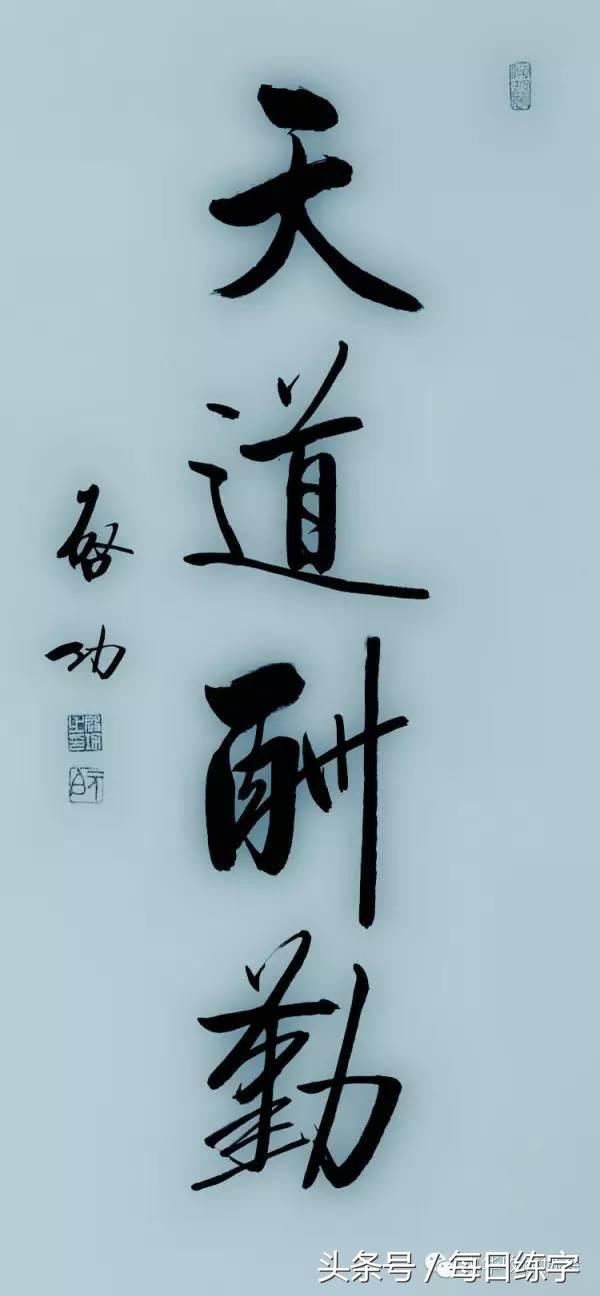 天道酬勤
启功
头条号/每日练字